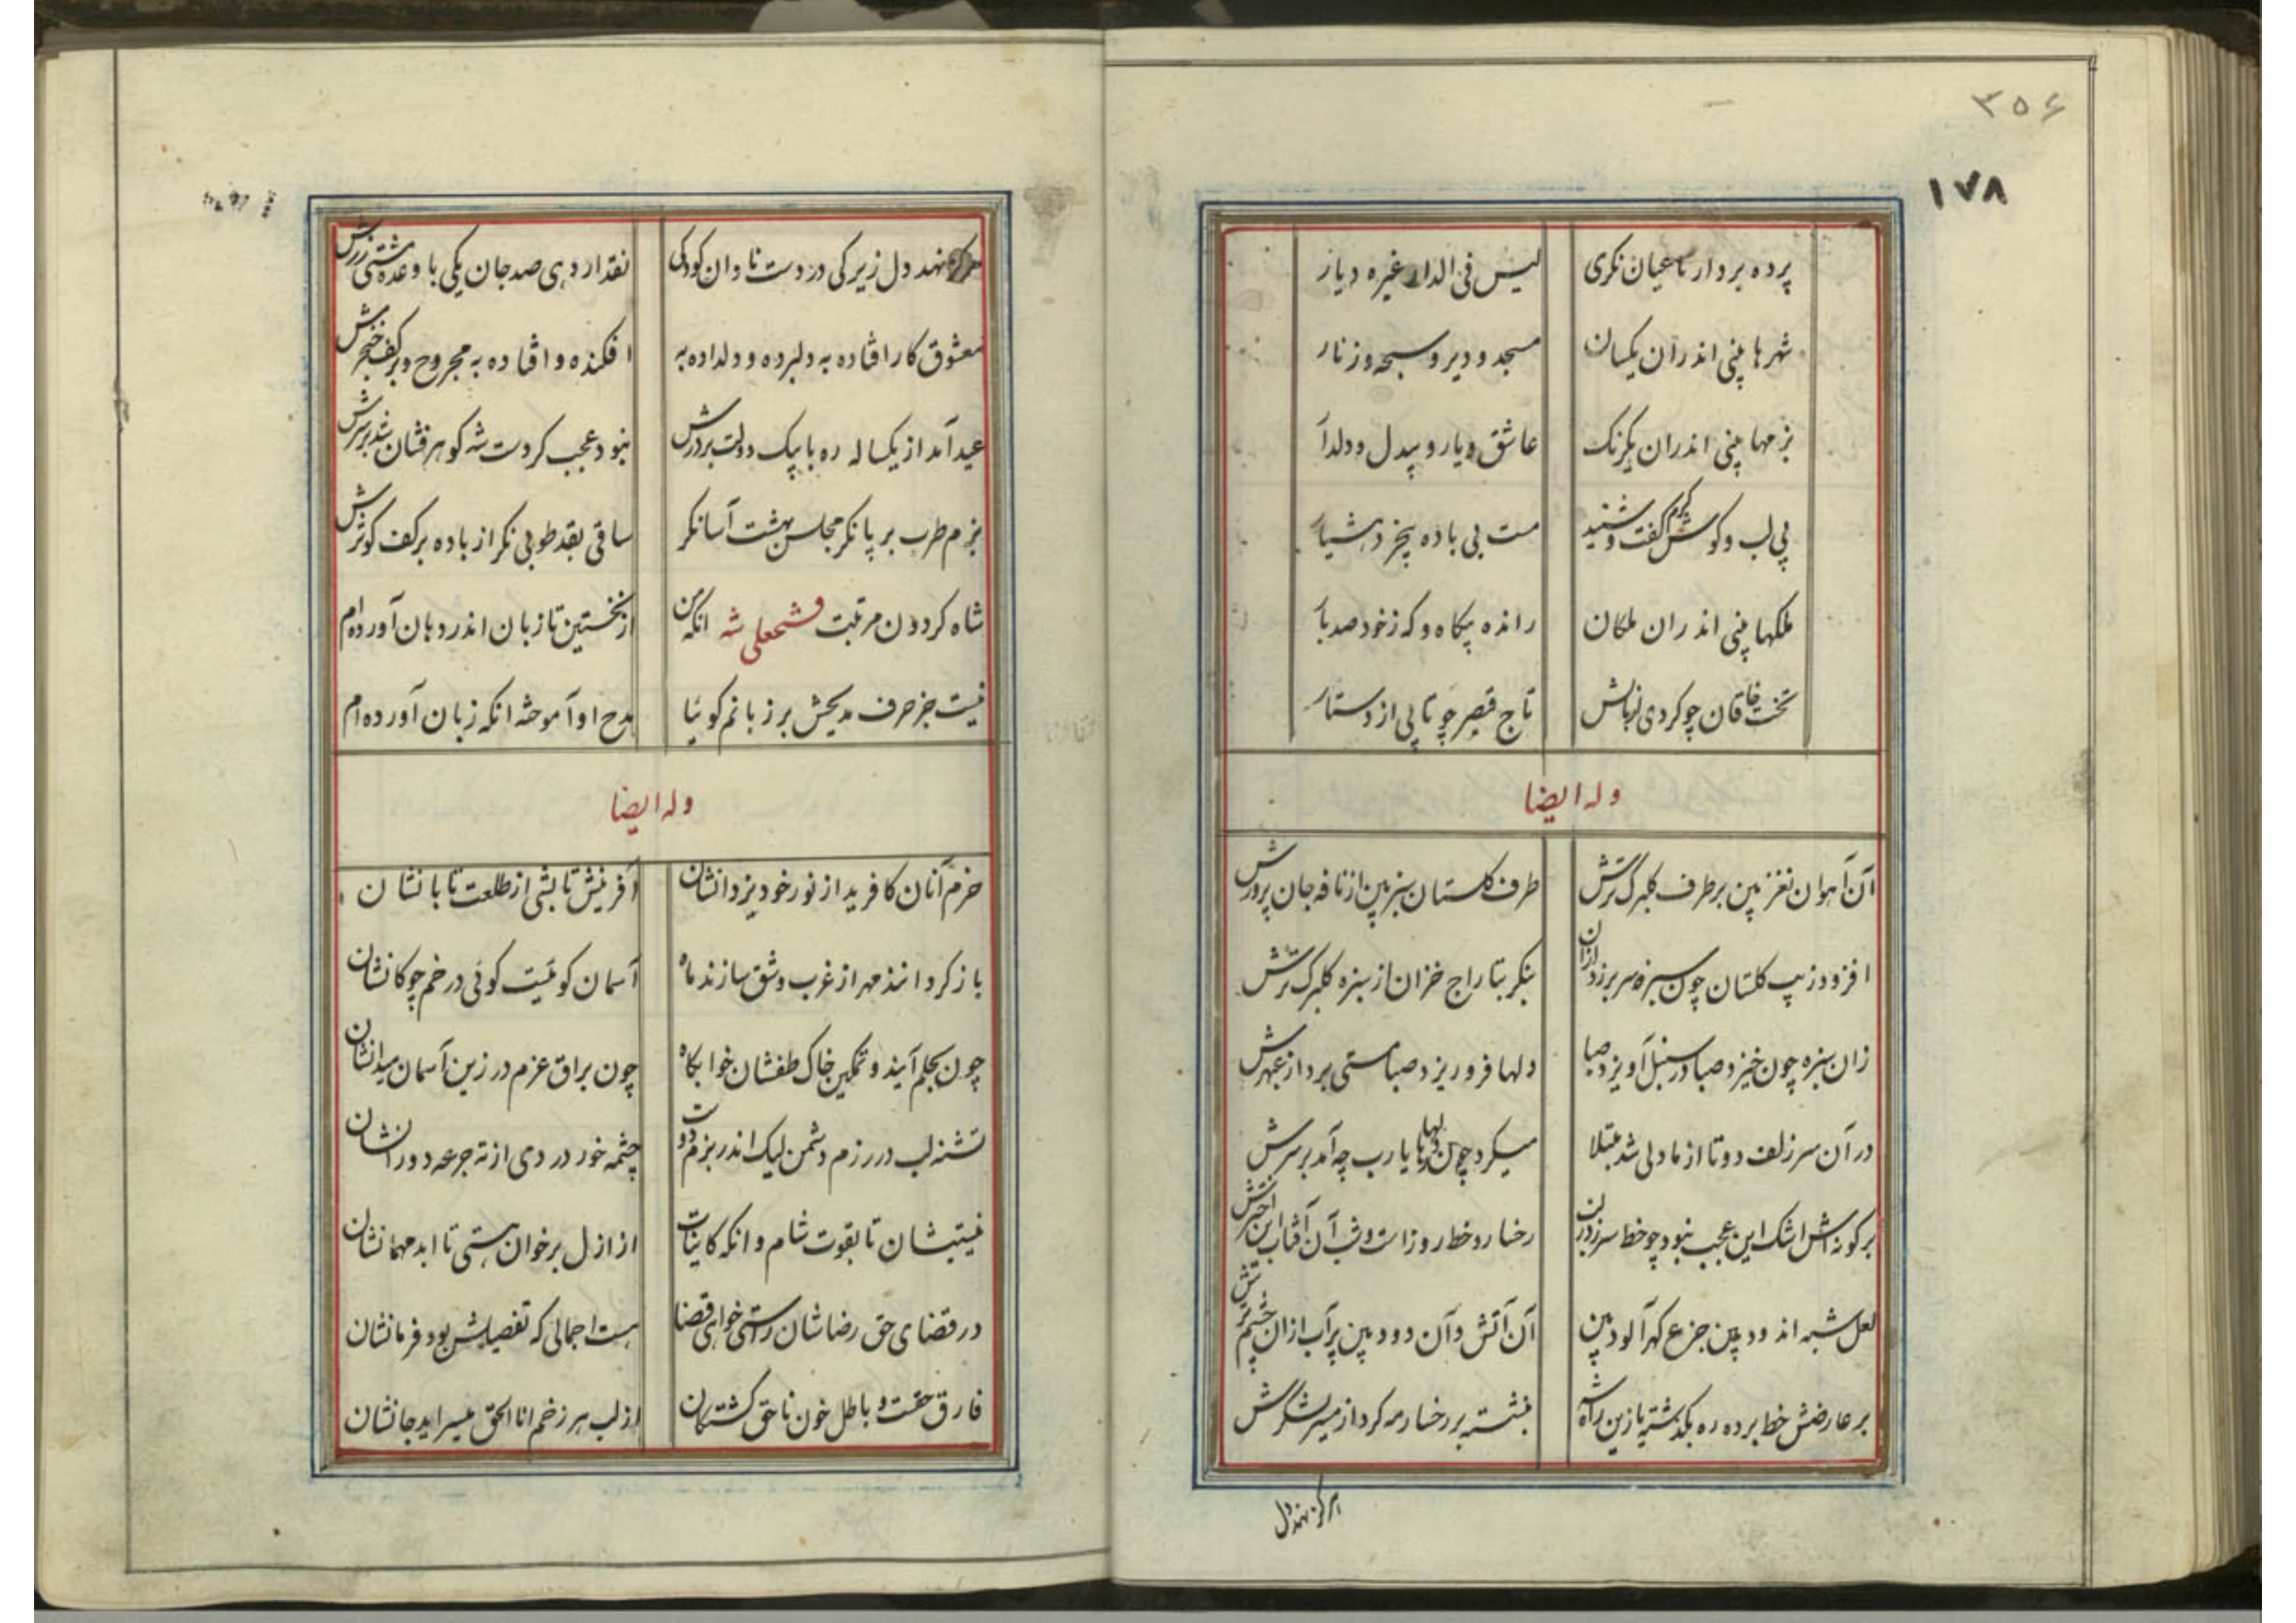 ۳۵۶
۱۷۸
پرده بردار تا عیان نگری لیس فی الدار غیره دیار
شهرها بینی اندران یکسان مسجد و دیر و سبحه و زنار
بزمها بینی اندران یکرنک عاشق و یار و بیدل و دلدا
بی لب و کوش کرم کفت و شنید مست بی باده بیخبر هشیار
ملکها بینی اندران ملکان رانده بیکاه و که ز خود صد بار
تخت خاقان چو کردی از بالش تاج قیصر چو تا پی از دستار
وله ایضا
آن آهوان نغز بین بر طرف کلبرک ترش طرف کلستان سبز بین از نافه جان پرورش
افزود زیب کلستان چون سبزه سر برزد ازان بنکر بتاراج خزان از سبزه کلبرک ترش
زان سبزه چون خیزد صبا در سنبل آویزد صبا دلها فرو ریزد صبا مستی برد از عبهرش
در آن سر زلف دوتا از ما دلی شد مبتلا میکرد چون لبها یا رب چه آمد بر سرش
بر کونه اش اشک این عجب نبود چو خط سرزد ز لب رخسار و خط روز است و شب آن آفتاب این اخترش
لعل شبه اندود بین جزع کهر آلود بین آن آتش و آن دود بین پر آب ازان چشم ترش
بر عارضش خط برده ره بکذشته یا زین راه شه بنشسته بر رخسار مه کرد از مسیر لشکرش
هرکز نهد دل
هرکز نهد دل زیرکی در دست نادان کودکی نقد ار دهی صد جان یکی با وعده مشتی زرش
معشوق کار افتاده به دلبرده و دلداده به افکنده و افتاده به مجروح و بر کف خنجرش
عید آمد از یکساله ره با پیک دولت بر درش نبود عجب کر دست شه کوهر فشان شد بر سرش
بزم طرب بر پا نکر مجلس بهشت آسا نکر ساقی بقد طوبی نکر از باده بر کف کوثرش
شاه کردون مرتبت فتحعلی شه انکه من از نخستین تا زبان اندر دهان آورده ام
نیست جز حرف مدیحش بر زبانم کوئیا مدح او آموخته انکه زبان آورده ام
وله ایضا
خرم آنان کافرید از نور خود یزدانشان آفرینش تابشی از طلعت تابانشان
باز کردانند مهر از غرب و شق سازند ماه آسمان کوئیست کوئی در خم چوکانشان
چون بحکم آیند و تمکین خاک طفشان خوابکاه چون براق عزم در زین آسمان میدانشان
تشنه لب در رزم دشمن لیک اندر بزم دوست چشمه خور دردی از ته جرعه دورانشان
نیتیشان تا بقوت شام و انکه کاینات از ازل بر خوان هستی تا ابد مهمانشان
در قضای حق رضاشان راستی خواهی قضا هست اجمالی که تفصیلش بود فرمانشان
فارق حقست و باطل خون ناحق کشتکان از لب هر زخم انا الحق میسراید جانشان